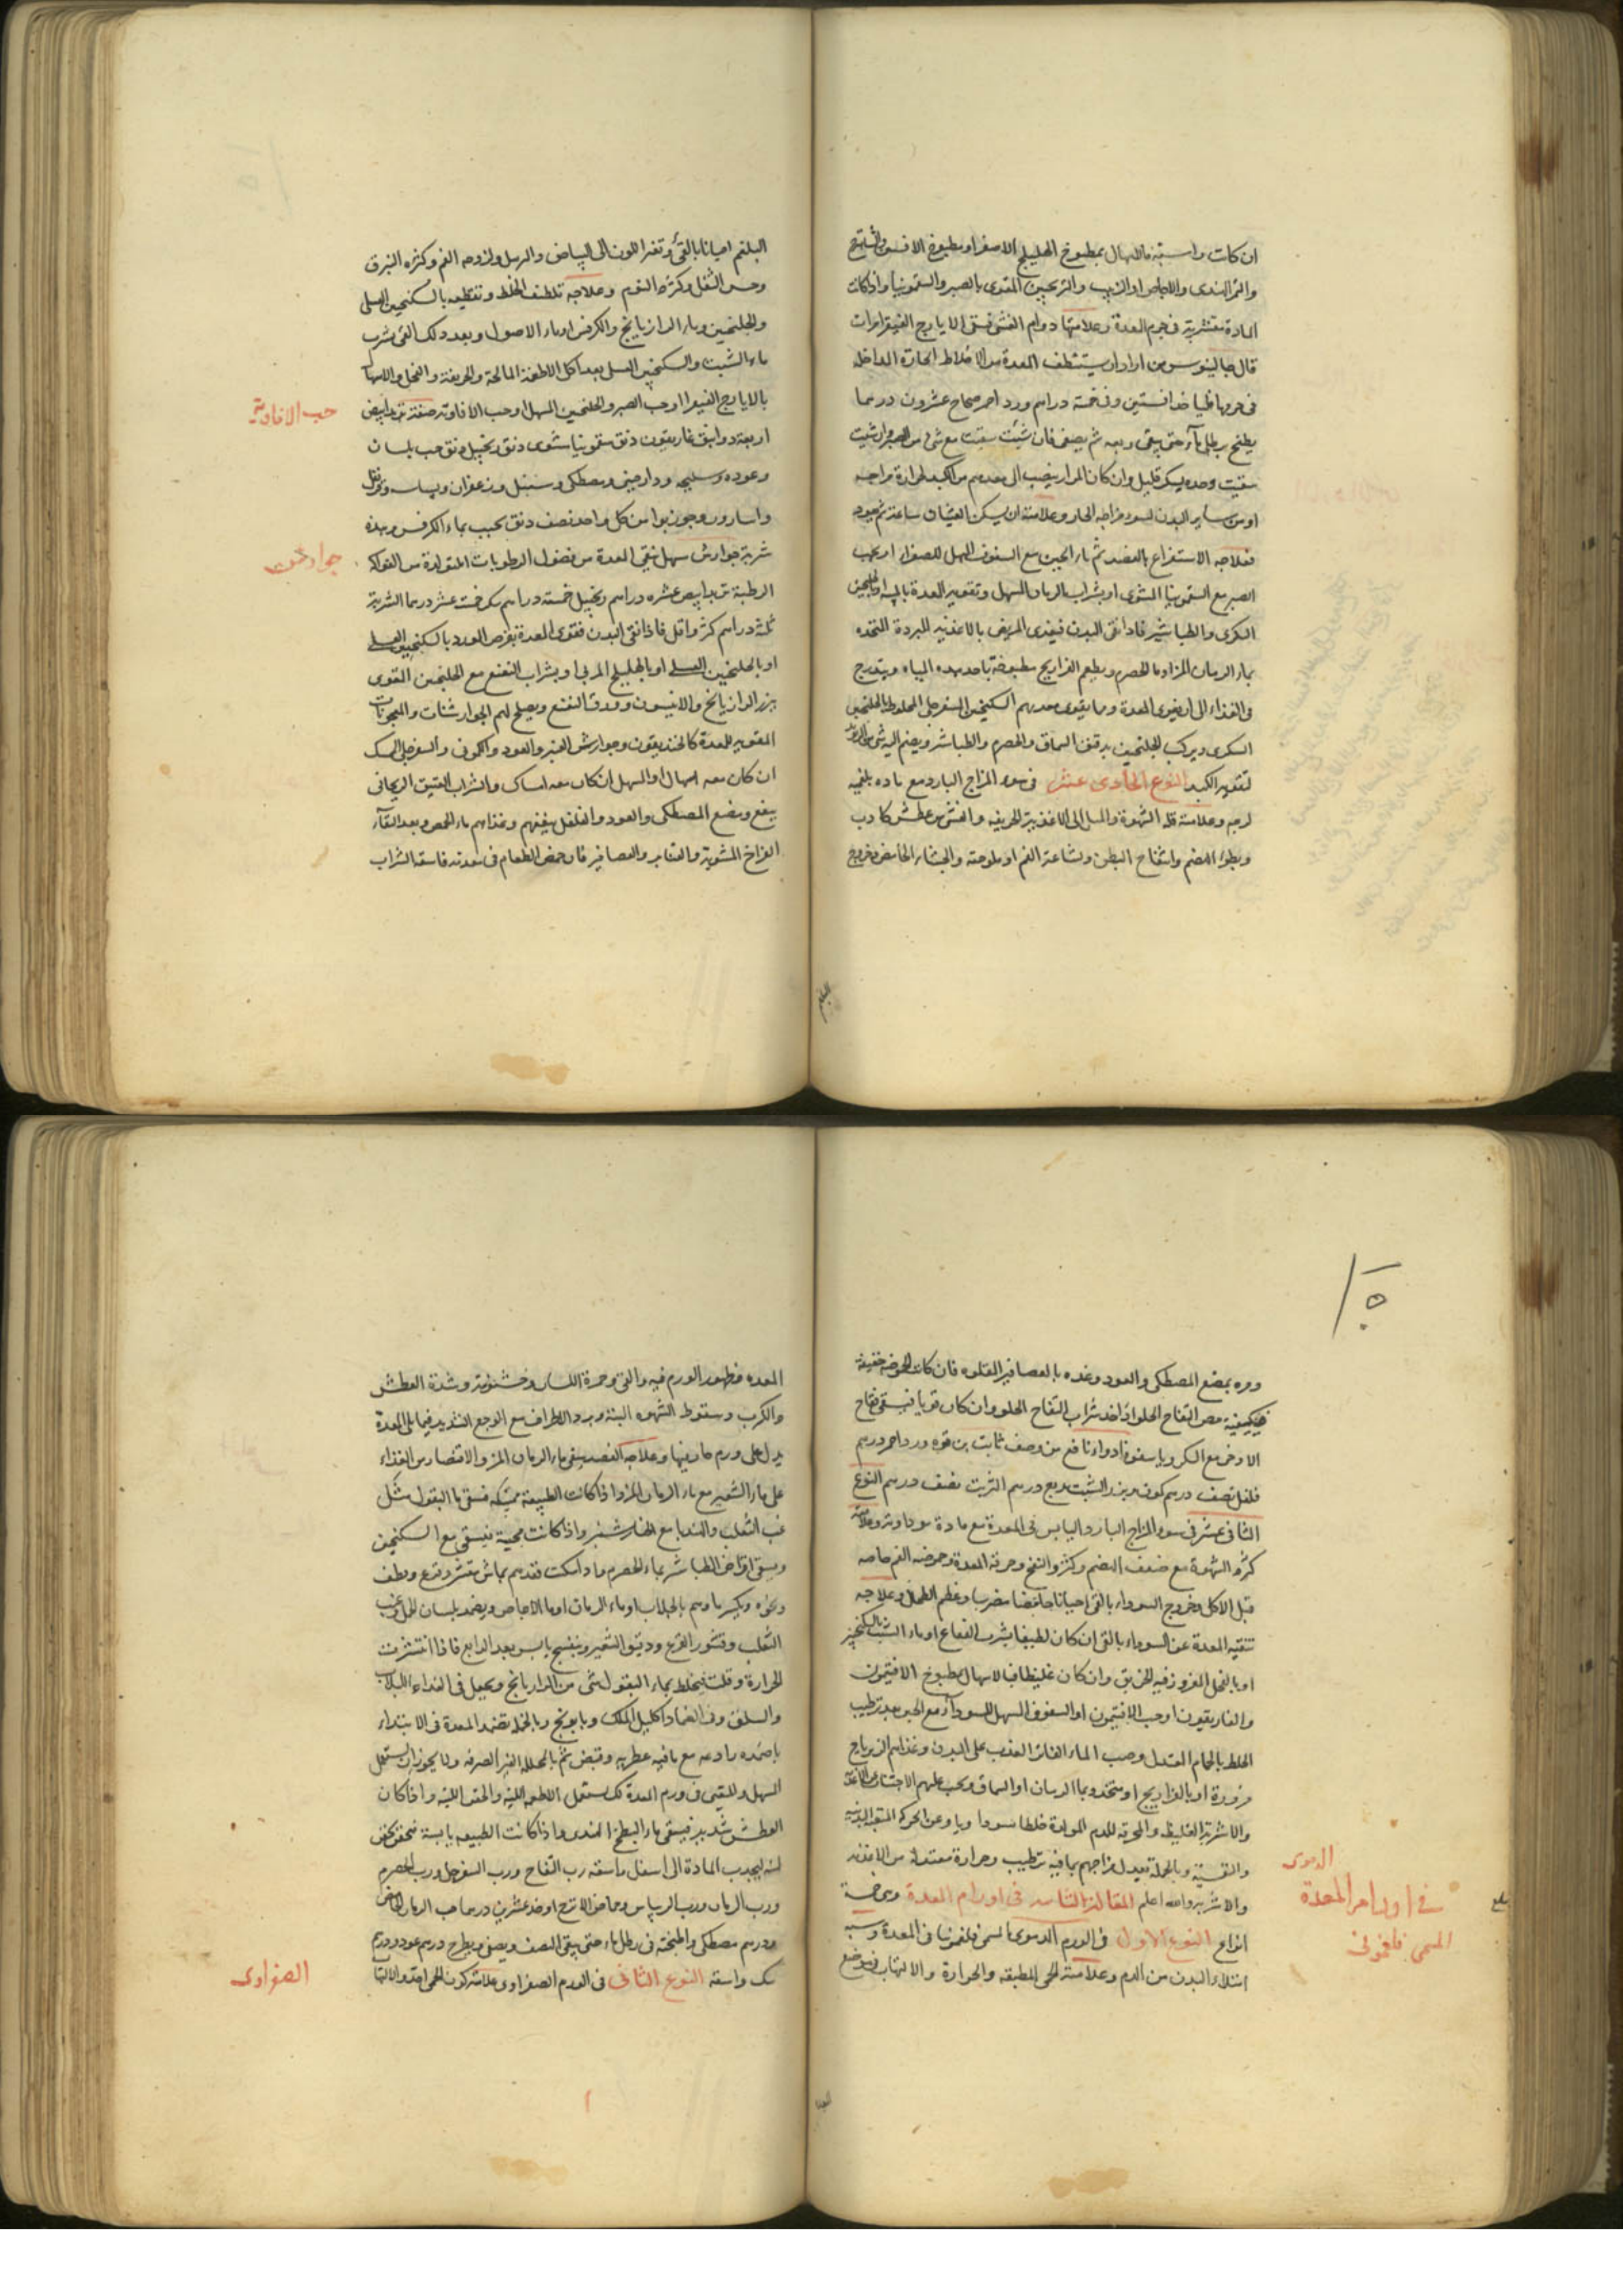 ان كانت راسبة فالاسهال بمطبوخ الهليلج الاصفر او مطبوخ الافسنتين
والتمر الهندى والاجاص او الزبيب والترنجبين المقوى بالصبر والسقمونيا واذا كانت
المادة متشربة فى جرم المعدة وعلامتها دوام الغثى فتسقى الايارج الفيقرا مرات
قال جالينوس من اراد ان يستنظف المعدة من الاخلاط الحارة الداخلة
فى جرمها فليأخذ افسنتين وفى خمسة دراهم ورد احمر صحاح عشرون درهما
يطبخ برطلى ماء حتى يبقى ربعه ثم يصفى فان شئت سقيت مع شئ من الصبر وان شئت
سقيت وحده بسكر قليل وان كان المرار ينصب الى معدهم من الكبد لحرارة مزاجه
او من ساير البدن لسوء مزاجه الحار وعلامته ان يسكن الغثيان ساعة ثم يعود
فعلاجه الاستفراغ بالفصد ثم ماء الجبن مع السفوف المسهل للصفراء او بحب
الصبر مع السقمونيا المشوى او بشراب الرمان المسهل وتقوية المعدة
السكرى والطباشير فاذا نقى البدن فيغذى المريض بالاغذية المبردة المتخذة
بماء الرمان المز او ماء الحصرم ويطعم الفراريج مطبوخة باحد هذه المياه ويتدرج
فى الغذاء الى ان يقوى المعدة ومما يقوى معدهم السكنجبين السفرجلى المخلوط بالجلنجبين
السكرى ويركب الجلنجبين بدقيق السماق والحصرم والطباشير ويضم اليه شئ من الراوند
لتقوية الكبد النوع الحادى عشر فى سوء المزاج البارد مع مادة بلغمية
لزجة وعلامته قلة الشهوة والميل الى الاغذية الحريفة والغشى وعطش كاذب
وبطوء الهضم وانتفاخ البطن وبشاعة الفم او ملوحته والجشاء الحامض وخروج
البلغم
البلغم احيانا بالقئ وتغير اللون الى البياض والرهل ولزوجة الفم وكثرة البزق
وحس الثقل وكثرة النوم وعلاجه تلطيف الخلط وتقطيعه بالسكنجبين العسلى
والجلنجبين وماء الرازيانج والكرفس او ماء الاصول وبعد ذلك القئ بشرب
ماء الشبث والسكنجبين العسلى بعد اكل الاطعمة المالحة والحريفة والفجل والاسهال
بالايارج الفيقرا او حب الصبر والجلنجبين المسهل او حب الافاوية صفته تربد ابيض
حب الافاوية
اربعة دوانق غاريقون دنق سقمونيا مشوى دنق زنجبيل دنق حب بلسان
وعوده وسليخه ودارصينى ومصطكى وسنبل وزعفران وبسباسه وقرنفل
واسارون وجوز بوا من كل واحد نصف دنق يحبب بماء الكرفس وهذه
شربة جوارش مسهل ينقى المعدة من فضول الرطوبات المتولدة من الفواكه
الرطبة تربد ابيض عشرة دراهم زنجبيل خمسة دراهم سكر خمسة عشر درهما الشربة
ثلثة دراهم اكثر واقل فاذا نقى البدن فتقوى المعدة بقرص الورد بالسكنجبين العسلى
او بالجلنجبين العسلى او بالهليلج المربى او بشراب النعنع مع الجلنجبين المقوى
ببزر الرازيانج والانيسون وورق النعنع ويصلح لهم الجوارشنات والمعجونات
المقوية للمعدة كالخنديقون وجوارش العنبر والعود والكمونى والسفرجلى الممسك
ان كان معه اسهال او المسهل ان كان معه امساك والشراب العتيق الريحانى
ينفع ومضغ المصطكى والعود والفلفل ينفعهم وغذاهم ماء الحمص وبعد النقاء
الفراخ المشوية والقنابر والعصافير فان حمض الطعام فى معدته فاسقه الشراب
ومره بمضغ المصطكى والعود وغذه بالعصافير المقلوه فان كانت الحموضة خفيفة
فيكفيه مص التفاح الحلو او اخذ شراب التفاح الحلو وان كان قويا فيسقى فقاح
الاذخر مع السكر وماء سفوف ادواء نافع من وصف ثابت بن قره ورد احمر درهم
فلفل نصف درهم كمون بزر الشبث ربع درهم الشربة نصف درهم النوع
الثانى عشر فى سوء المزاج البارد اليابس فى المعدة مع مادة سوداوية وعلامته
كثرة الشهوة مع ضعف الهضم وكثرة النفخ وحرقة المعدة وحموضة الفم خاصة
قبل الاكل وخروج السوداء بالقئ احيانا حامضا مضرسا وعظم الطحال وعلاجه
تنقية المعدة عن السوداء بالقئ ان كان لطيفا بشرب الفقاع او ماء الشبث بالسكنجبين
او بالفجل المغروز فيه الخربق وان كان غليظا فبالاسهال بمطبوخ الافتيمون
والغاريقون او حب الافتيمون او السفوف المسهل للسوداء مع ماء الجبن بعد ترطيب
الخلط بالحمام المعتدل وصب الماء الفاتر العذب على البدن وغذاهم الزيرباج
مزورة او بالفراريج او متخذة بماء الرمان او السماق ويجب عليهم الاجتناب عن الاغذية
والاشربة الغليظة والمحرقة للدم المولدة خلطا سوداويا وعن الحركة المتعبة البدنية
والنفسية وبالجملة تعديل مزاجهم بما فيه ترطيب وحرارة معتدلة من الاغذية
والاشربة والله اعلم المقالة الثامنة فى اورام المعدة وهى خمسة
انواع النوع الاول فى الورم الدموى المسمى فلغمونيا فى المعدة وسببه
امتلاء البدن من الدم وعلامته الحمى المطبقة والحرارة والالتهاب فى موضع
الدموى
فى اورام المعدة
المسمى فلغمونى
المعدة وظهور الورم فيه والقئ وحمرة اللسان وخشونته وشدة العطش
والكرب وسقوط الشهوة البتة وبرد الاطراف مع الوجع الشديد فيما يلى المعدة
يدل على ورم حار فيها وعلاجه الفصد وسقى ماء الرمان المز والاقتصار من الغذاء
على ماء الشعير مع ماء الرمان المز واذا كانت الطبيعة ممسكة فتسقى ماء البقول مثل
عنب الثعلب والهندبا مع الخيارشنبر واذا كانت مجيبة فيسقى مع السكنجبين
ويسقى اقراص الطباشير بماء الحصرم ما دامت فغذهم بماش مقشر وقرع وقطف
ونحوه ويكسر ماؤهم بالجلاب او ماء الرمان او ماء الاجاص ويضمد بلسان الحمل وعنب
الثعلب وقشور القرع ودقيق الشعير وبنفسج يابس بعد الرابع فاذا انتشرت
الحرارة وقلت فيخلط بماء البقول شئ من الرازيانج ويجعل فى الغذاء اللبلاب
والسلق وفى الضماد اكليل الملك وبابونج وبالجملة تضمد المعدة فى الابتداء
باضمدة رادعة مع ما فيه عطرية وقبض ثم بالمحللة الغير الصرفة ولا يجوز ان يستعمل
المسهل والمقيئ فى ورم المعدة بل يستعمل الاطعمة اللينة والحقن اللينة واذا كان
العطش شديد فيسقى ماء البطيخ الهندى واذا كانت الطبيعة يابسة فيحقن بحقن
لينة ليجذب المادة الى اسفل واسقه رب التفاح ورب السفرجل ورب الحصرم
ورب الرمان ورب الريباس وحماض الاترج او خذ عشرين درهما حب الرمان الحامض
ودرهم مصطكى واطبخه فى رطل ماء حتى يبقى النصف ويصفى ويطرح درهم عود ودرهم
سك واسقه النوع الثانى فى الورم الصفراوى علامته كون الحمى احد والالتهاب
الصفراوى